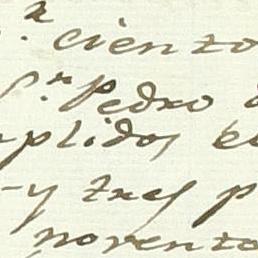 ciento
S.r Pedro
plidos e
-y tres p
noventa